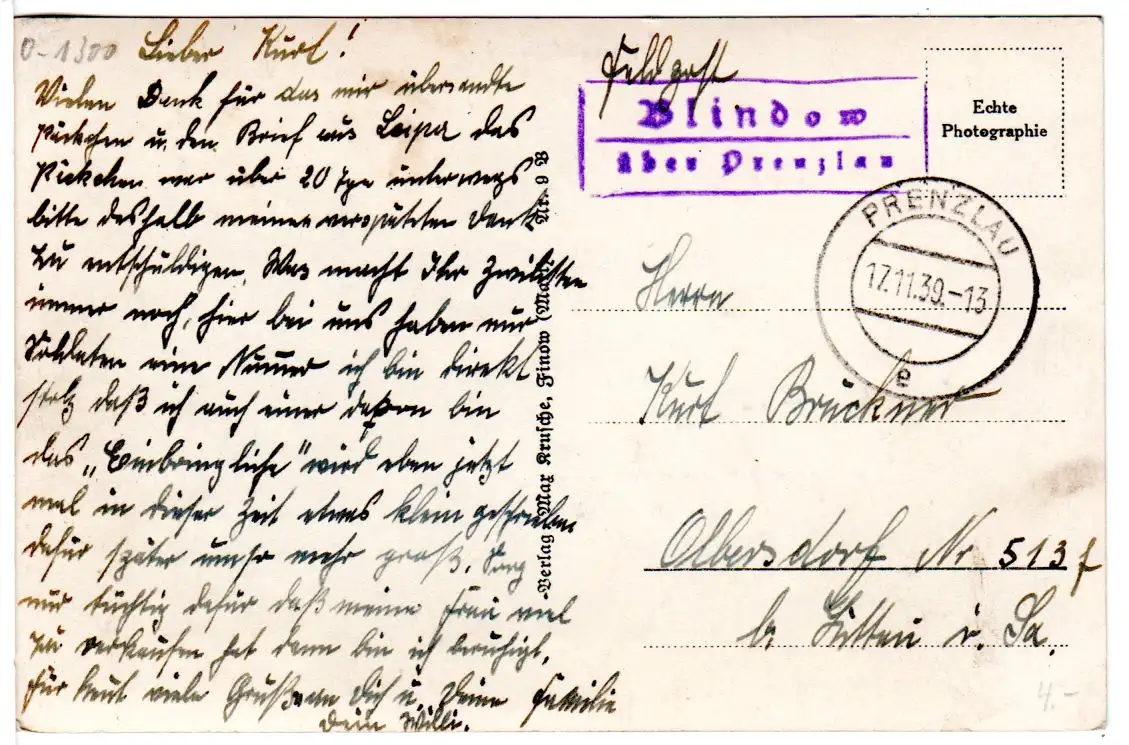 0-1300
Lieber Kurt!
Vielen Dank für das mir übersandte
Päckchen u. den Brief aus Leipa das
Päckchen war über 20 Tge unterwegs
bitte deshalb meinen verspäteten Dank
zu entschuldigen. Was macht Ihr Zivilisten
immer noch, hier bei uns haben nur
Soldaten eine Nummer ich bin direkt
stolz daß ich auch einer davon bin
das „Einbringliche" wird eben jetzt
mal in dieser Zeit etwas klein geschrieben
dafür später umso mehr groß. Sorg
nur tüchtig dafür daß meine Frau viel
zu verkaufen hat dann bin ich beruhigt.
Für heut viele Grüße an Dich u. Deine Familie
Dein Willi.
Verlag: Max Krusche, Finow (Mark) Nr. 9 B
Feldpost
Blindow
über Prenzlau
Echte
Photographie
PRENZLAU
17.11.39.-13
e
Herrn
Kurt Bruckner
Olbersdorf Nr 513 f
b. Zittau i. Sa.
4.-